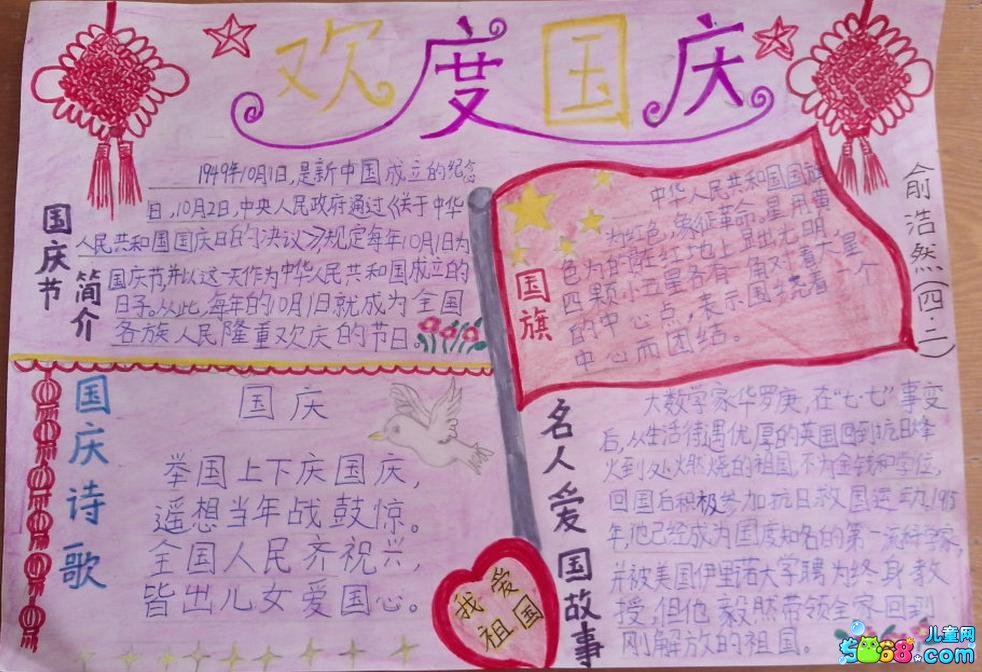 欢度国庆
国庆节
简介
1949年10月1日,是新中国成立的纪念
日,10月2日,中央人民政府通过《关于中华
人民共和国国庆日的决议》,规定每年10月1日为
国庆节,并以这一天作为中华人民共和国成立的
日子。从此,每年的10月1日就成为全国
各族人民隆重欢庆的节日。
国旗
中华人民共和国国旗
为红色,象征革命。星用黄
色为的在红地上显出光明,
四颗小五星各有一角对着大星
的中心点,表示围绕着一个
中心而团结。
俞浩然(四·二)
国庆诗歌
国庆
举国上下庆国庆,
遥想当年战鼓惊。
全国人民齐祝兴,
皆出儿女爱国心。
我爱
祖国
名人爱国故事
大数学家华罗庚,在"七·七"事变
后,从生活待遇优厚的英国回到抗日烽
火到处燃烧的祖国,不为金钱和学位,
回国后积极参加抗日救国运动,1945
年,他已经成为国度知名的第一流科学家,
并被美国伊里诺大学聘为终身教
授,但他毅然带领全家回到
刚解放的祖国。
儿童网
68.com